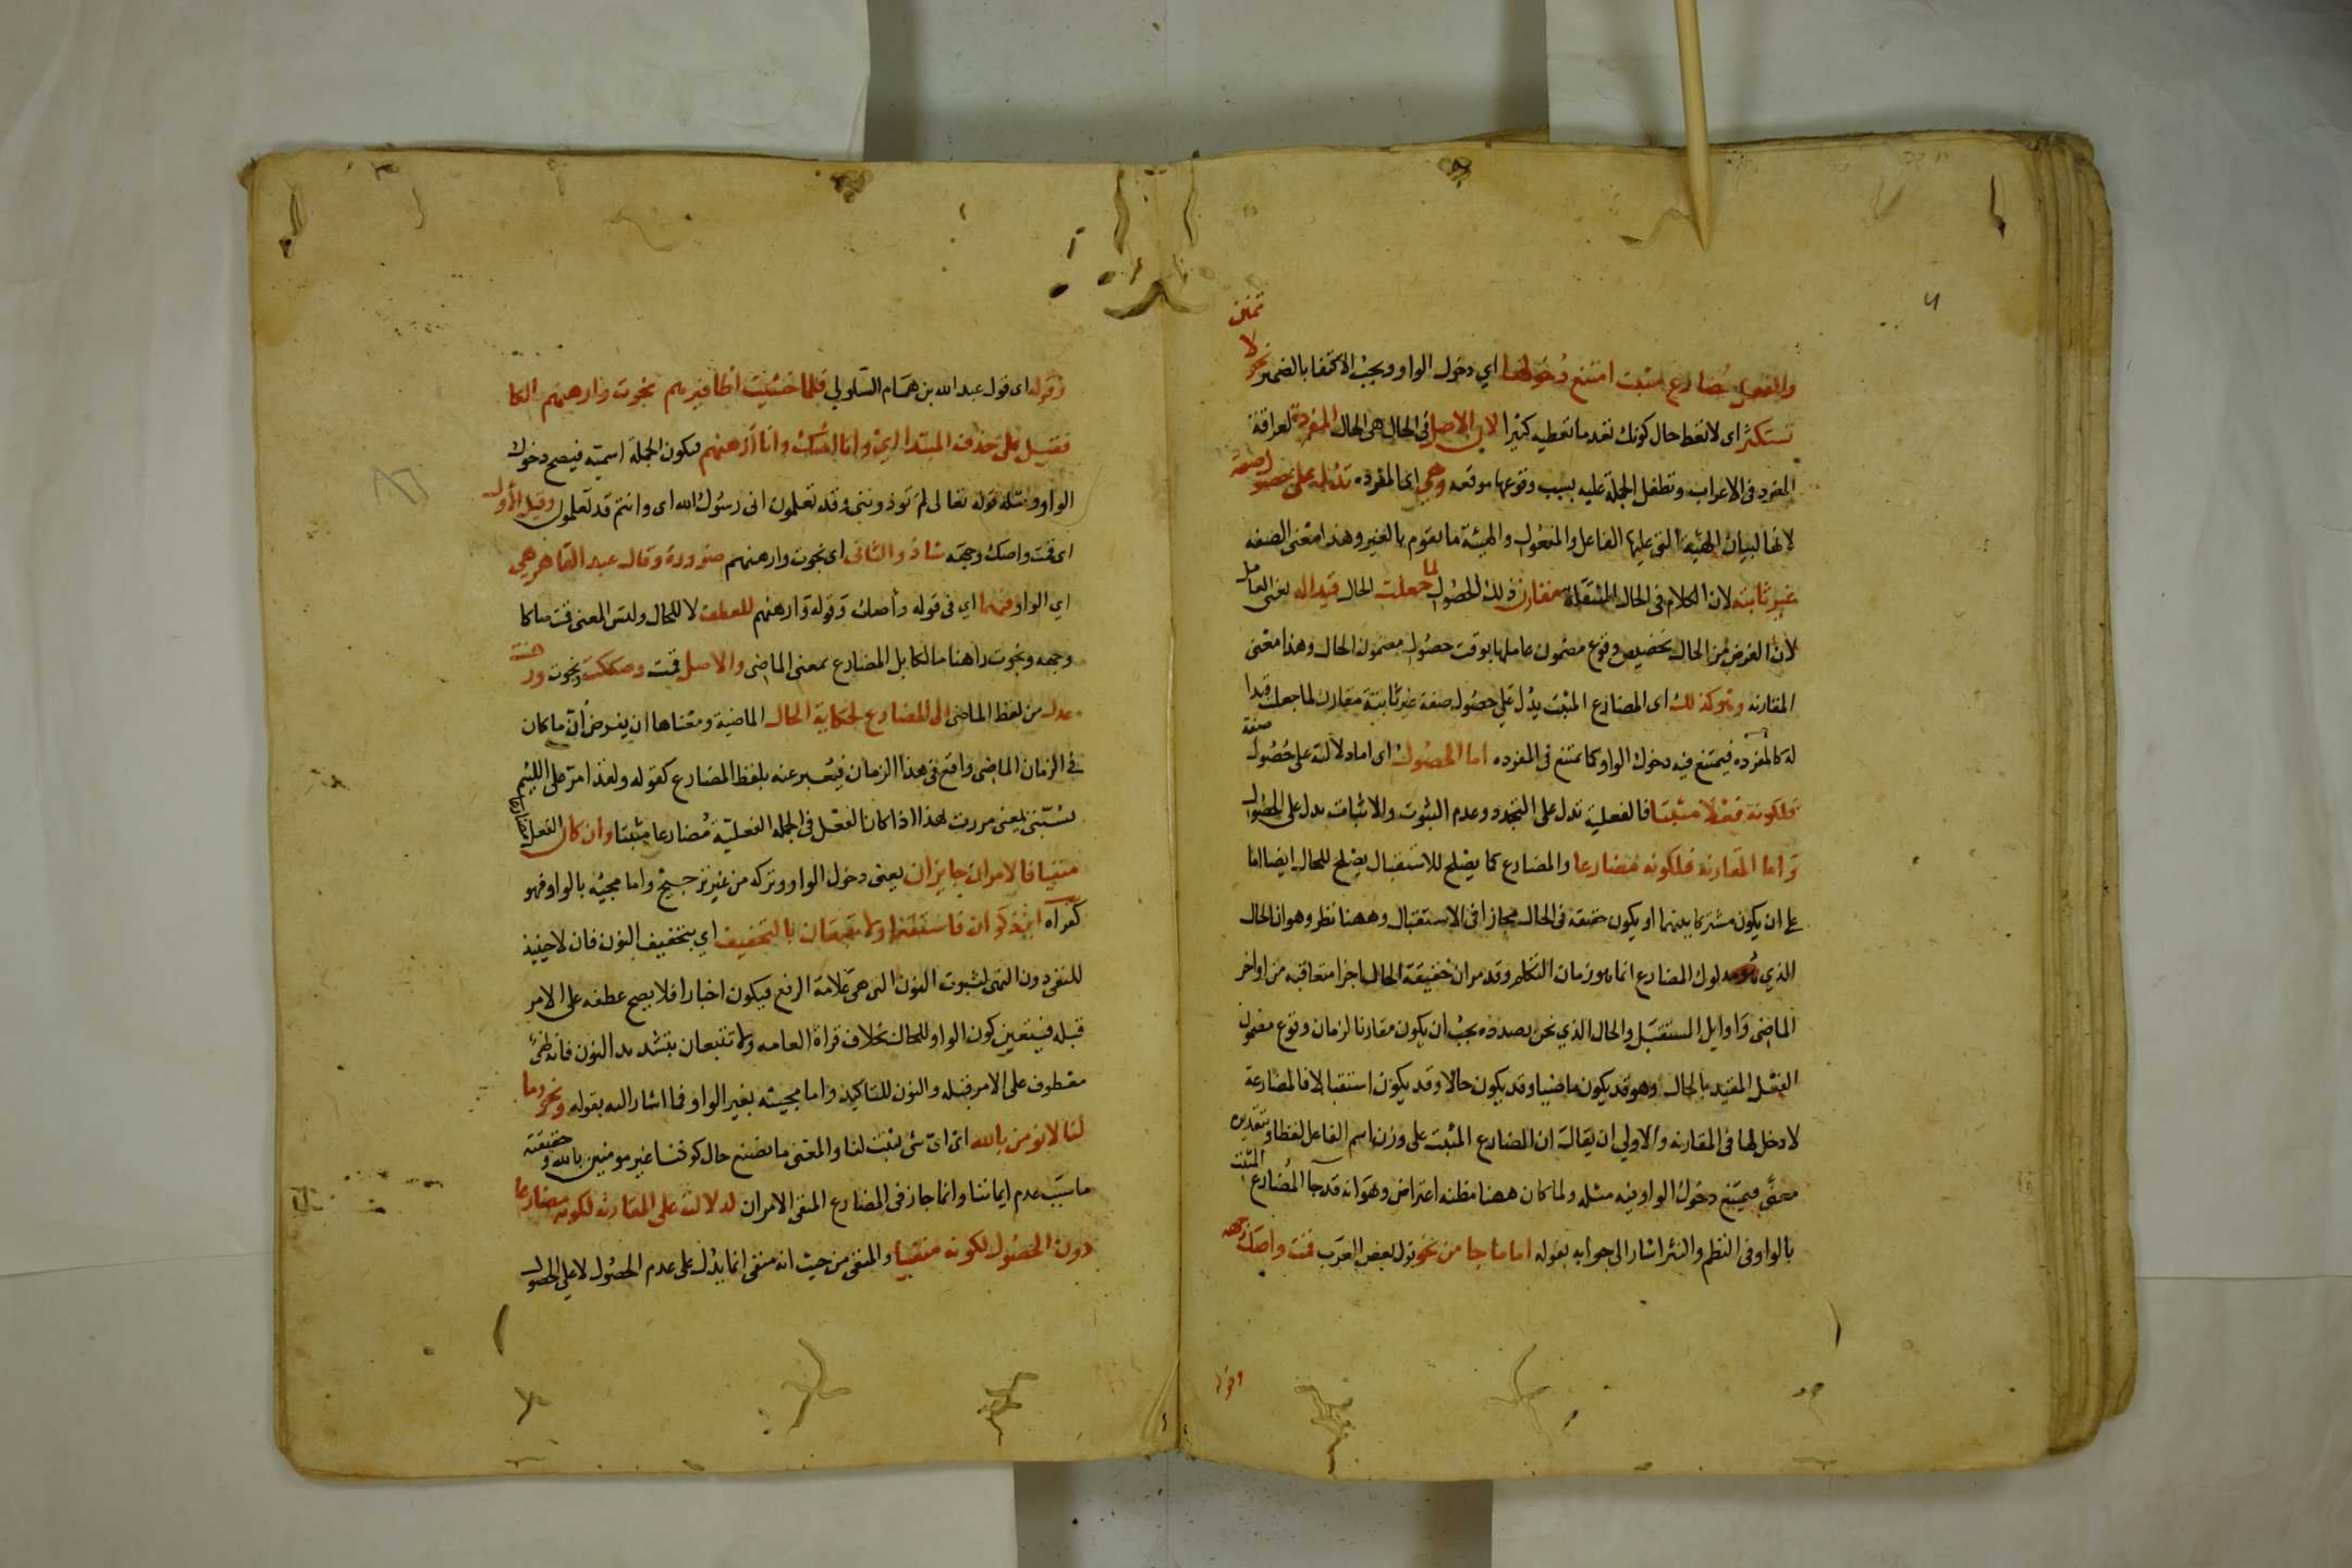 والفعل مضارع مثبت امتنع دخولها اي دخول الواو ويجب الاكتفا بالضمير نحو لا تمنن
تستكثر اى لا تعط حال كونك تعد ما تعطيه كثيرا لان الاصل فى الحال هى الحال المفردة لعراقة
المفرد فى الاعراب وتطفل الجملة عليه بسبب وقوعها موقعه وهي اى المفرده تدل على حصول صفة
لانها لبيان الهيئة التى عليها الفاعل والمفعول والهيئة ما يقوم بالغير وهذا معنى الصفه
غير ثابته لان الكلام فى الحال المنتقلة مقارن ذلك الحصول لما جعلت الحال قيدا له يعنى العامل
لان الغرض من الحال تخصيص وقوع مضمون عاملها بوقت حصول مضمون الحال وهذا معنى
المقارنه وهو كذلك اى المضارع المثبت يدل على حصول صفة غير ثابتة مقارن لما جعلت قيدا
له كالمفرده فيمتنع فيه دخول الواو كما تمتنع فى المفرده اما الحصول اى اما دلالته على حصول صفة
فلكونه فعلا مثبتا فالفعلية تدل على التجدد وعدم الثبوت والاثبات يدل على الحصول
واما المقارنه فلكونه مضارعا والمضارع كما يصلح للاستقبال يصلح للحال ايضا اما
على ان يكون مشتركا بينهما او يكون حقيقه فى الحال مجازا فى الاستقبال وههنا نظر وهو ان الحال
الذي هو مدلول المضارع انما هو زمان التكلم وقد مر ان حقيقة الحال اجزا متعاقبه من اواخر
الماضى واوايل المستقبل والحال الذي نحن بصدده يجب ان يكون مقارنا لزمان وقوع مضمون
الفعل المقيد بالحال وهو قد يكون ماضيا وقد يكون حالا وقد يكون استقبالا فالمضارعة
لا دخل لها فى المقارنه والاولي ان يقال ان المضارع المثبت على وزن اسم الفاعل لفظا وبتقديره
معنى فيمتنع دخول الواو فيه مثله ولما كان ههنا مظنه اعتراض وهو انه قد جا المضارع المثبت
بالواو فى النظم والنثر اشار الى جوابه بقوله اما ما جا من نحو قول بعض العرب قمت واصك وجهه
وقوله
وقوله اى قول عبد الله بن همام السلولي فلما خشيت اظافيرهم نجوت وارهنهم مالكا
فقيل على حذف المبتدا اي وانا اصك وانا ارهنهم فيكون الجملة اسمية فيصح دخول
الواو ومثله قوله تعالى لم تؤذوننى وقد تعلمون انى رسول الله اى وانتم قد تعلمون وقيل الاول
اى قمت واصك وجهه شاذ والثانى اى نجوت وارهنهم ضرورة وقال عبد القاهر هي
اي الواو فيهما اي فى قوله واصك وقوله وارهنهم للعطف لا للحال وليس المعنى قمت صاكا
وجهه ونجوت راهنا مالكا بل المضارع بمعنى الماضى والاصل قمت وصككت ونجوت ورهنت
عدل من لفظ الماضى الى المضارع لحكاية الحال الماضية ومعناها ان يفرض ان ما كان
فى الزمان الماضى واقع فى هذا الزمان فيعبر عنه بلفظ المضارع كقوله ولقد امر على اللئيم
يسبنى يعنى مررت هذا اذا كان الفعل فى الجمله الفعلية مضارعا مثبتا وان كان الفعل مضارعا
منفيا فالامران جايزان يعنى دخول الواو وتركه من غير ترجيح واما مجيئه بالواو فهو
كقراة ابن ذكوان فاستقيما ولا تتبعان بالتخفيف اي بتخفيف النون فان لا حينيذ
للنفى دون النهى لثبوت النون التى هى علامة الرفع فيكون اخبارا فلا يصح عطفه على الامر
قبله فيتعين كون الواو للحال بخلاف قراة العامه ولا تتبعان بتشديد النون فانه نهى
معطوف على الامر قبله والنون للتاكيد واما مجيئه بغير الواو فما اشار اليه بقوله ونحو وما
لنا لا نؤمن بالله اى اى شى ثبت لنا والمعنى ما نصنع حال كوننا غير مومنين بالله وحقيقته
ما سبب عدم ايماننا وانما جاز فى المضارع المنفى الامران لدلالته على المقارنه لكونه مضارعا
دون الحصول لكونه منفيا والمنفى من حيث انه منفى انما يدل على عدم الحصول لا على الحصول